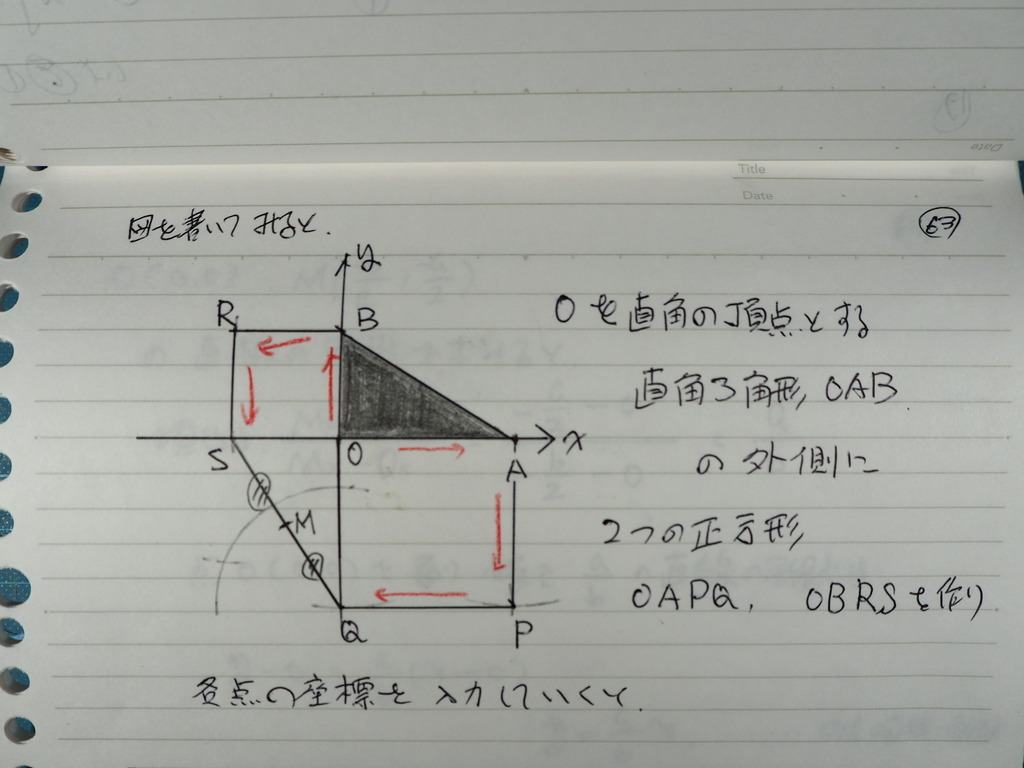 Title
Date
図を書いてみると.
63
y
R
B
Oを直角の頂点とする
直角3角形OAB
の外側に
2つの正方形
OAPQ, OBRSを作り
S
O
A
x
M
Q
P
各点の座標を入力していくと